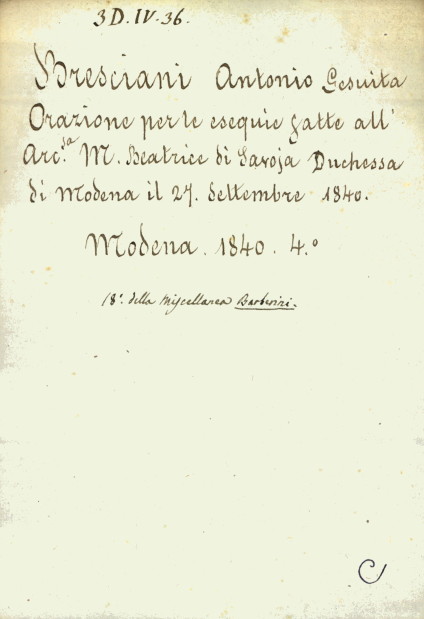 3 D. IV. 36.
Bresciani Antonio Gesuita
Orazione per le esequie fatte all'
Arc.sa M. Beatrice di Savoja Duchessa
di Modena il 27. Settembre 1840.
Modena. 1840. 4.°
18.ª della Miscellanea Barberini.
C